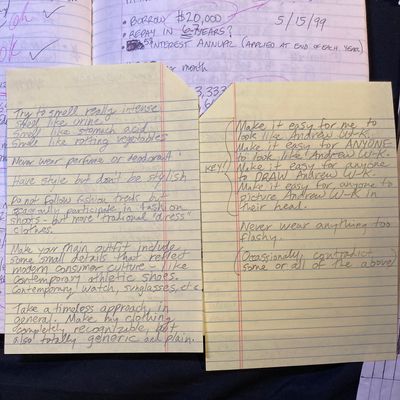 • BORROW $20,000
5/15/99
• REPAY IN YEARS?
• INTEREST ANNUAL (APPLIED AT END OF EACH YEAR)
month
3,333
Try to smell really intense
Smell like urine
Smell like stomach acid
Smell like rotting vegetables
Never wear perfume or deodorant!
Have style but don't be stylish
Do not follow fashion treads, but
casually participate in fashion
shows - but more "traditional "dress"
clothes.
Make your main outfit include
some small details that reflect
modern consumer culture - like
contemporary athletic shoes.
contemporary watch, sunglasses, etc.
Take a timeless approach, in
general. Make my clothing
completely recognizable, but
also totally generic and plain.
KEY!
Make it easy for me to
look like Andrew W-K.
Make it easy for ANYONE
to look like Andrew W-K.
Make it easy for anyone
to DRAW Andrew W-K.
Make it easy for anyone to
picture Andrew W-K in
their head.
Never wear anything too
flashy.
(Occassionally, contradict
some or all of the above)